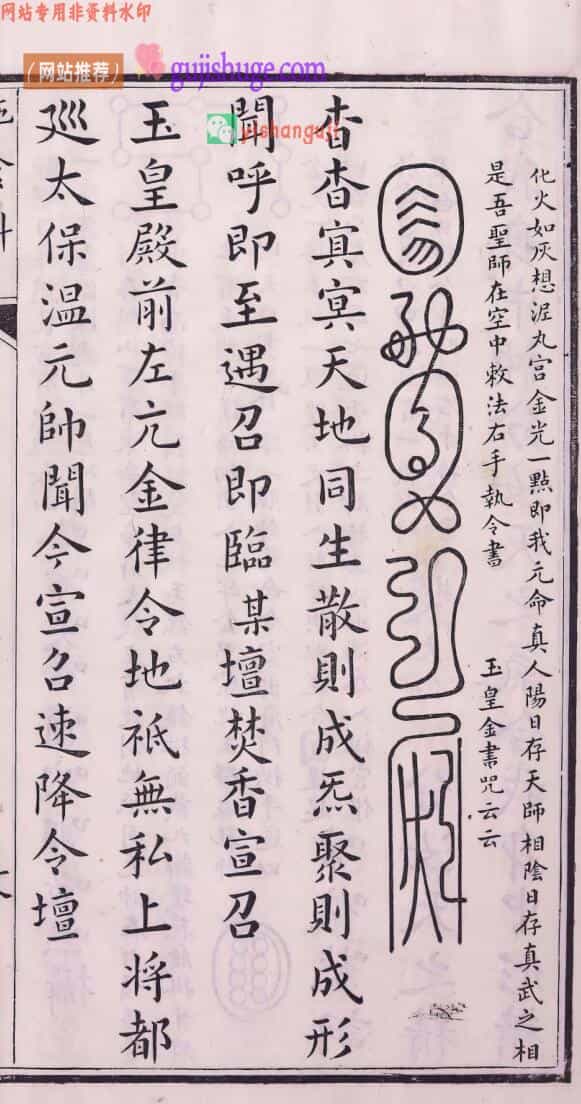 网站专用非资料水印
(网站推荐) gujishuge.com
yishanguji
化火如灰想泥丸宫金光一點即我元命真人陽日存天師相陰日存真武之相
是吾聖師在空中敕法右手執令書 玉皇金書咒云云
杳杳寘冥天地同生散則成炁聚則成形
聞呼即至遇召即臨某壇焚香宣召
玉皇殿前左亢金律令地祇無私上将都
廵太保温元帥聞今宣召速降令壇